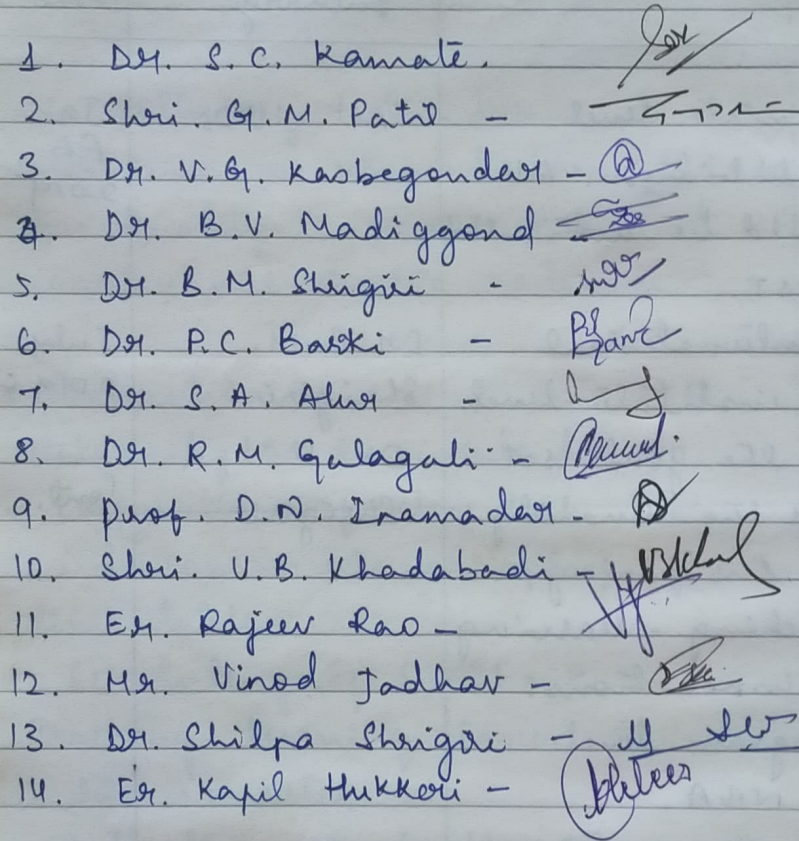 1. Dr. S.C. Kamate.
2. Shri. G.M. Patil -
3. Dr. V.G. Kasbegoudar -
4. Dr. B.V. Madiggond
5. Dr. B.M. Shrigiri -
6. Dr. P.C. Barki -
7. Dr. S.A. Alur -
8. Dr. R.M. Galagali -
9. Prof. D.N. Inamadar -
10. Shri. V.B. Khadabadi -
11. Er. Rajeev Rao -
12. Mr. Vinod Jadhav -
13. Dr. Shilpa Shrigiri -
14. Er. Kapil Hukkeri -